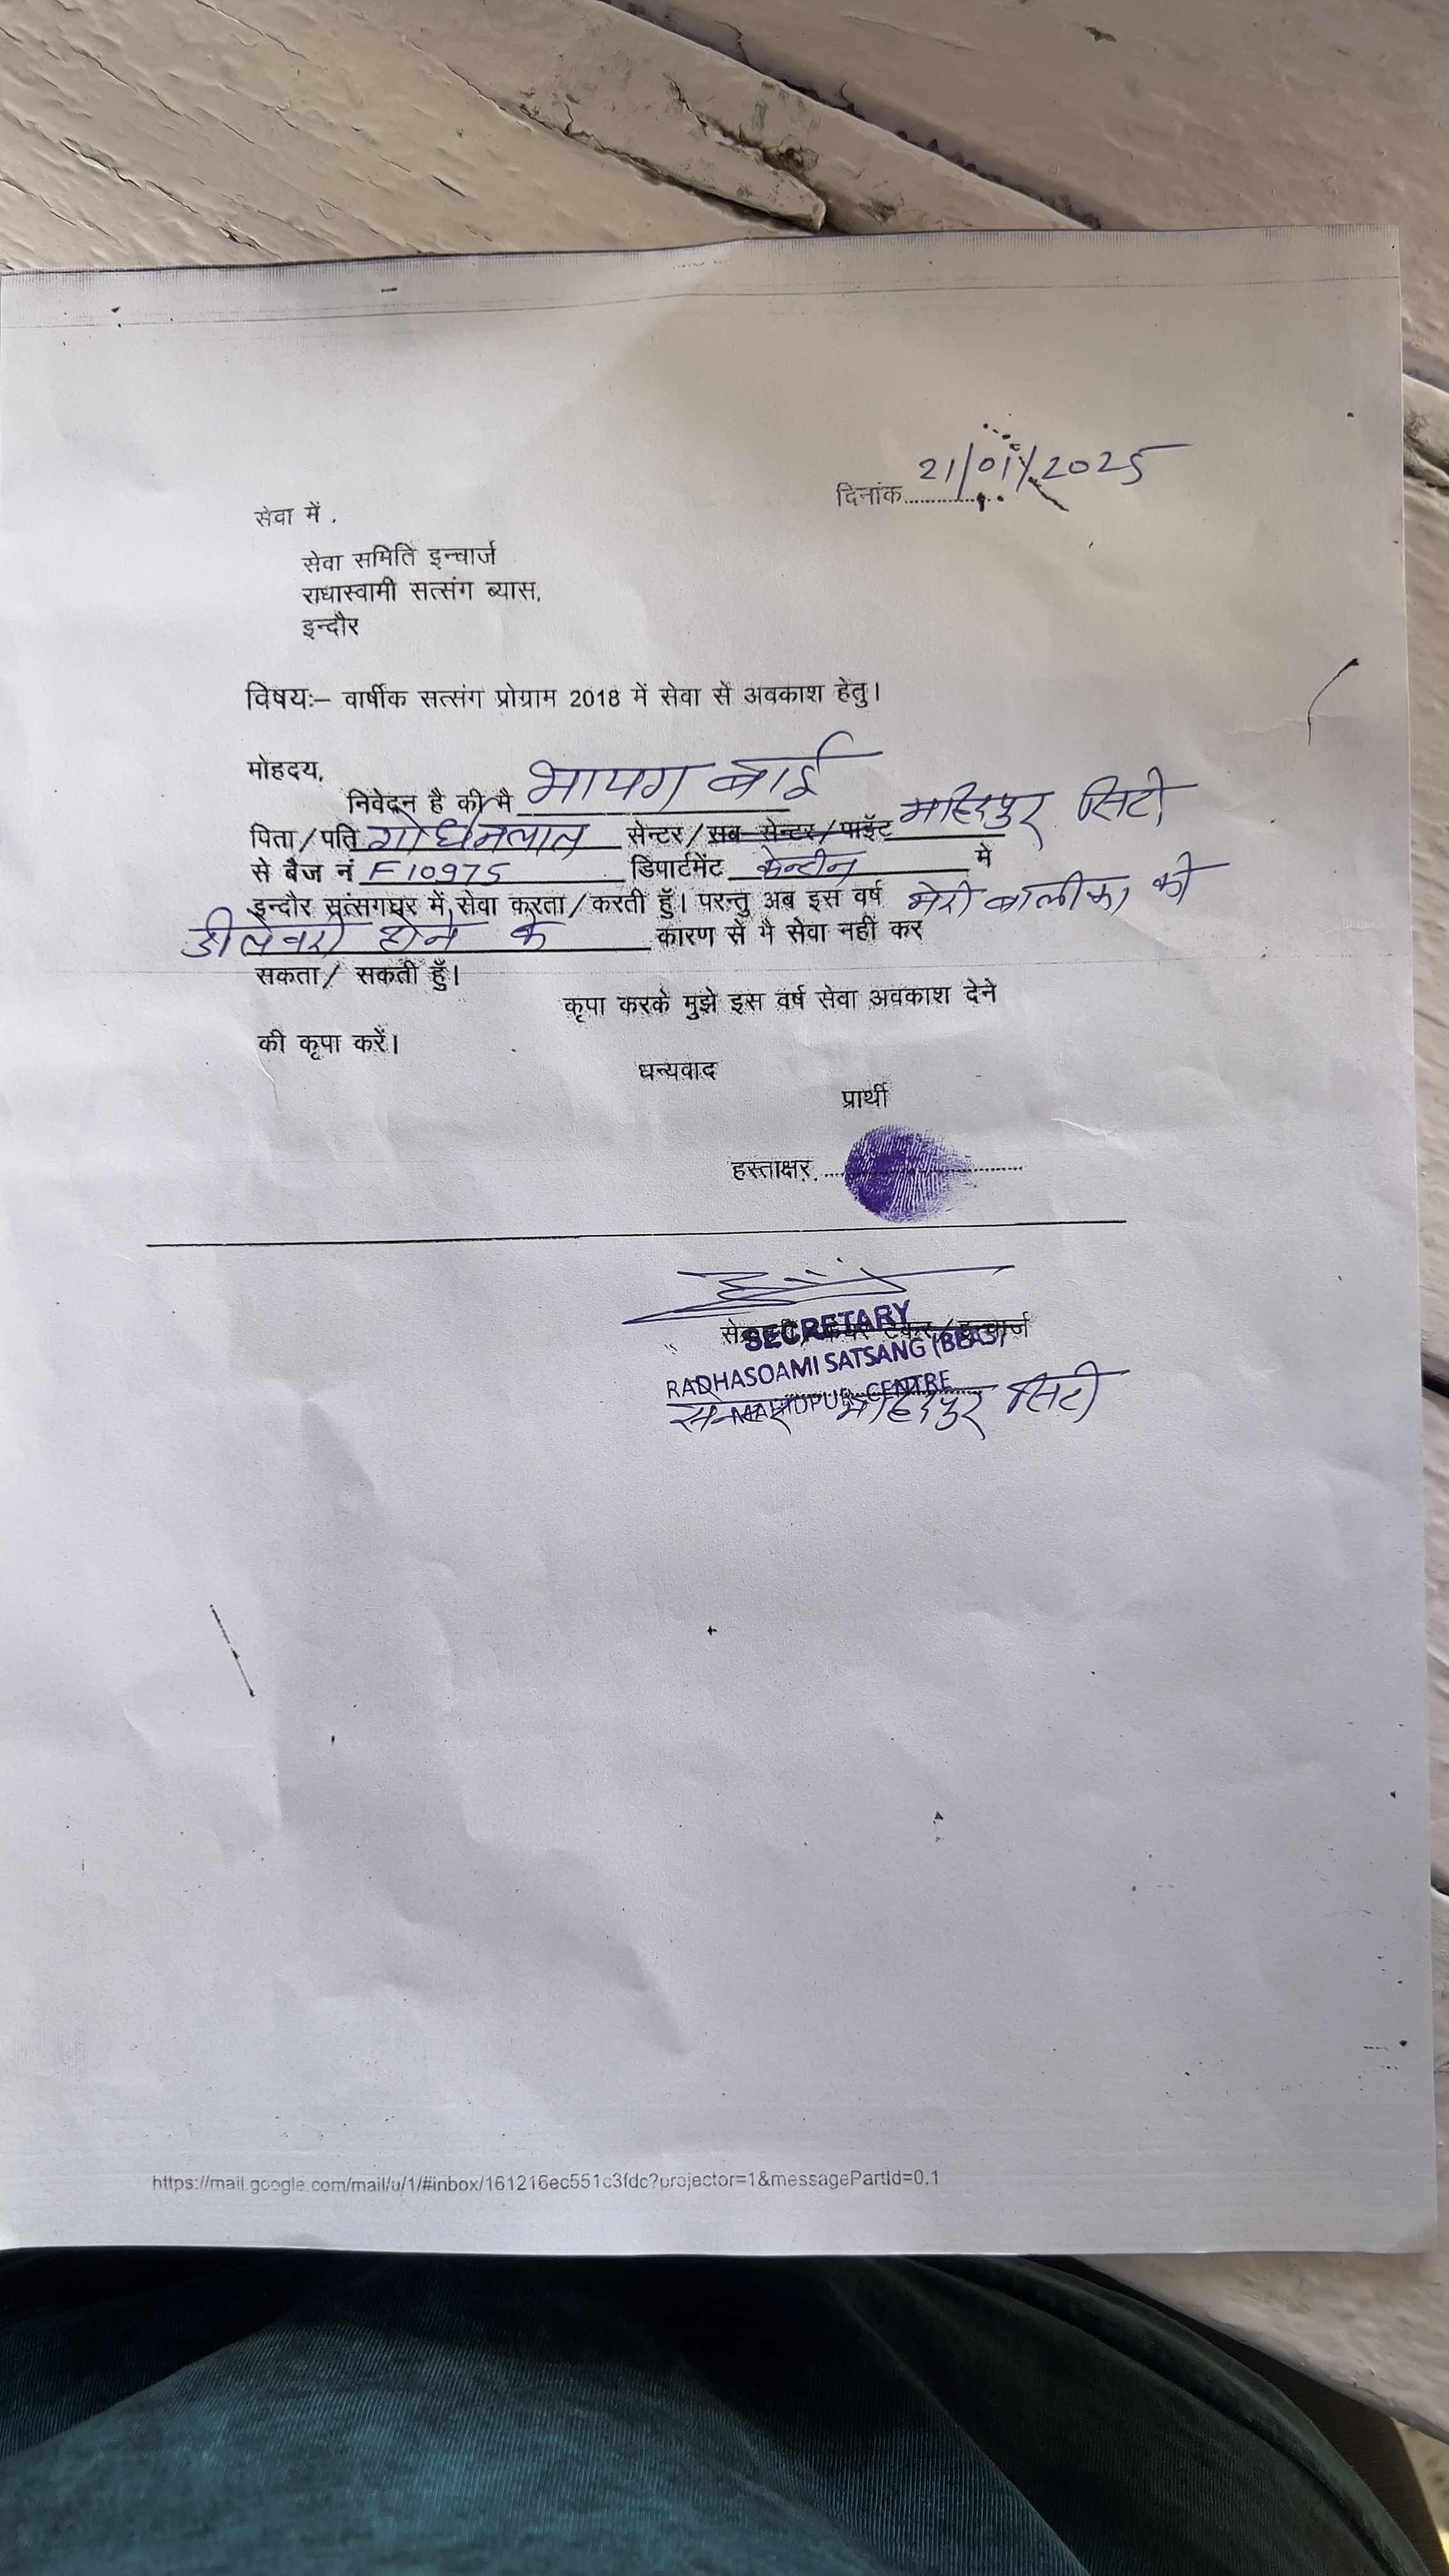 दिनांक 21/01/2025
सेवा में ,
सेवा समिति इन्चार्ज
राधास्वामी सत्संग ब्यास,
इन्दौर
विषयः– वार्षीक सत्संग प्रोग्राम 2018 में सेवा से अवकाश हेतु।
मोहदय,
निवेदन है की मै भायग बाई
पिता/पति गोर्धनलाल सेन्टर/सब सेन्टर/पाईंट महिदपुर सिटी
से बैज नं F10975 डिपार्टमेंट केन्टीन में
इन्दौर सत्संगघर में सेवा करता/करती हूँ। परन्तु अब इस वर्ष मेरी बालीका को
डीलेवरी होने के कारण से मै सेवा नहीं कर
सकता/ सकती हूँ।
कृपा करके मुझे इस वर्ष सेवा अवकाश देने
की कृपा करें।
धन्यवाद
प्रार्थी
हस्ताक्षर
SECRETARY
RADHASOAMI SATSANG (BEAS)
MAHIDPUR CENTRE
सेन्टर महिदपुर सिटी
https://mail.google.com/mail/u/1/#inbox/161216ec551c3fdc?projector=1&messagePartId=0.1